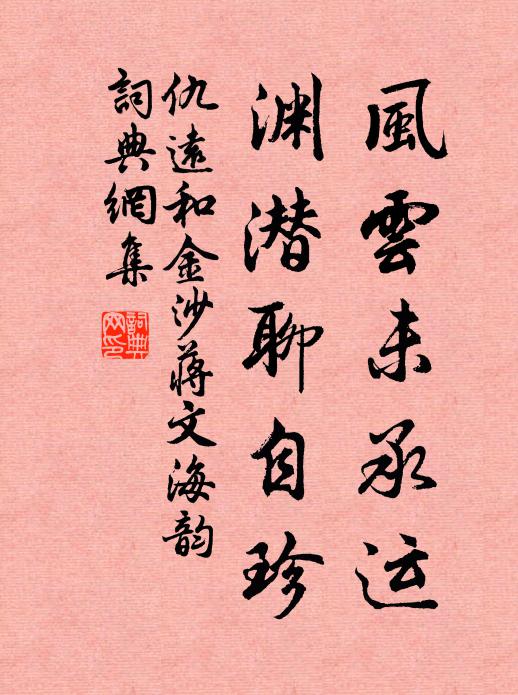 風雲未承运
渊潜聊自珍
仇遠和金沙蒋文海韵
詞典網集
詞典網印